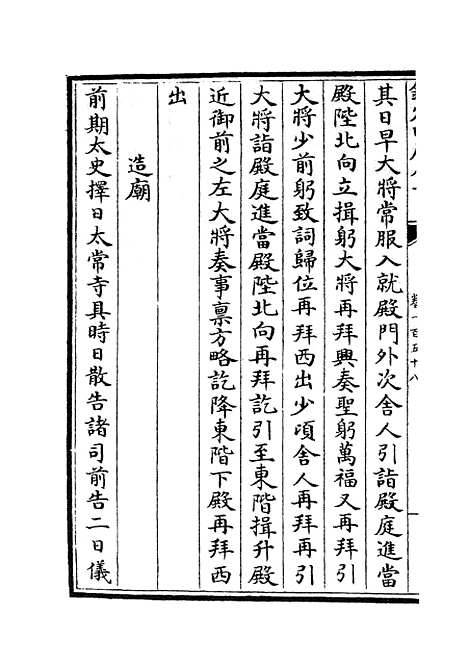 其日早大將常服入就殿門外次舍人引詣殿庭進當
殿陛北向立揖躬大將再拜興奏聖躬萬福又再拜引
大將少前躬致詞歸位再拜西出少頃舍人再拜再引
大將詣殿庭進當殿陛北向再拜訖引至東階揖升殿
近御前之左大將奏事禀方略訖降東階下殿再拜西
出
造廟
前期太史擇日太常寺具時日散告諸司前告二日儀
卷一百五十八